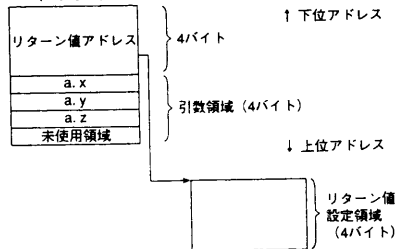 ↑ 下位アドレス
リターン値アドレス
4バイト
a.x
a.y
a.z
未使用領域
引数領域 (4バイト)
↓ 上位アドレス
リターン値
設定領域
(4バイト)